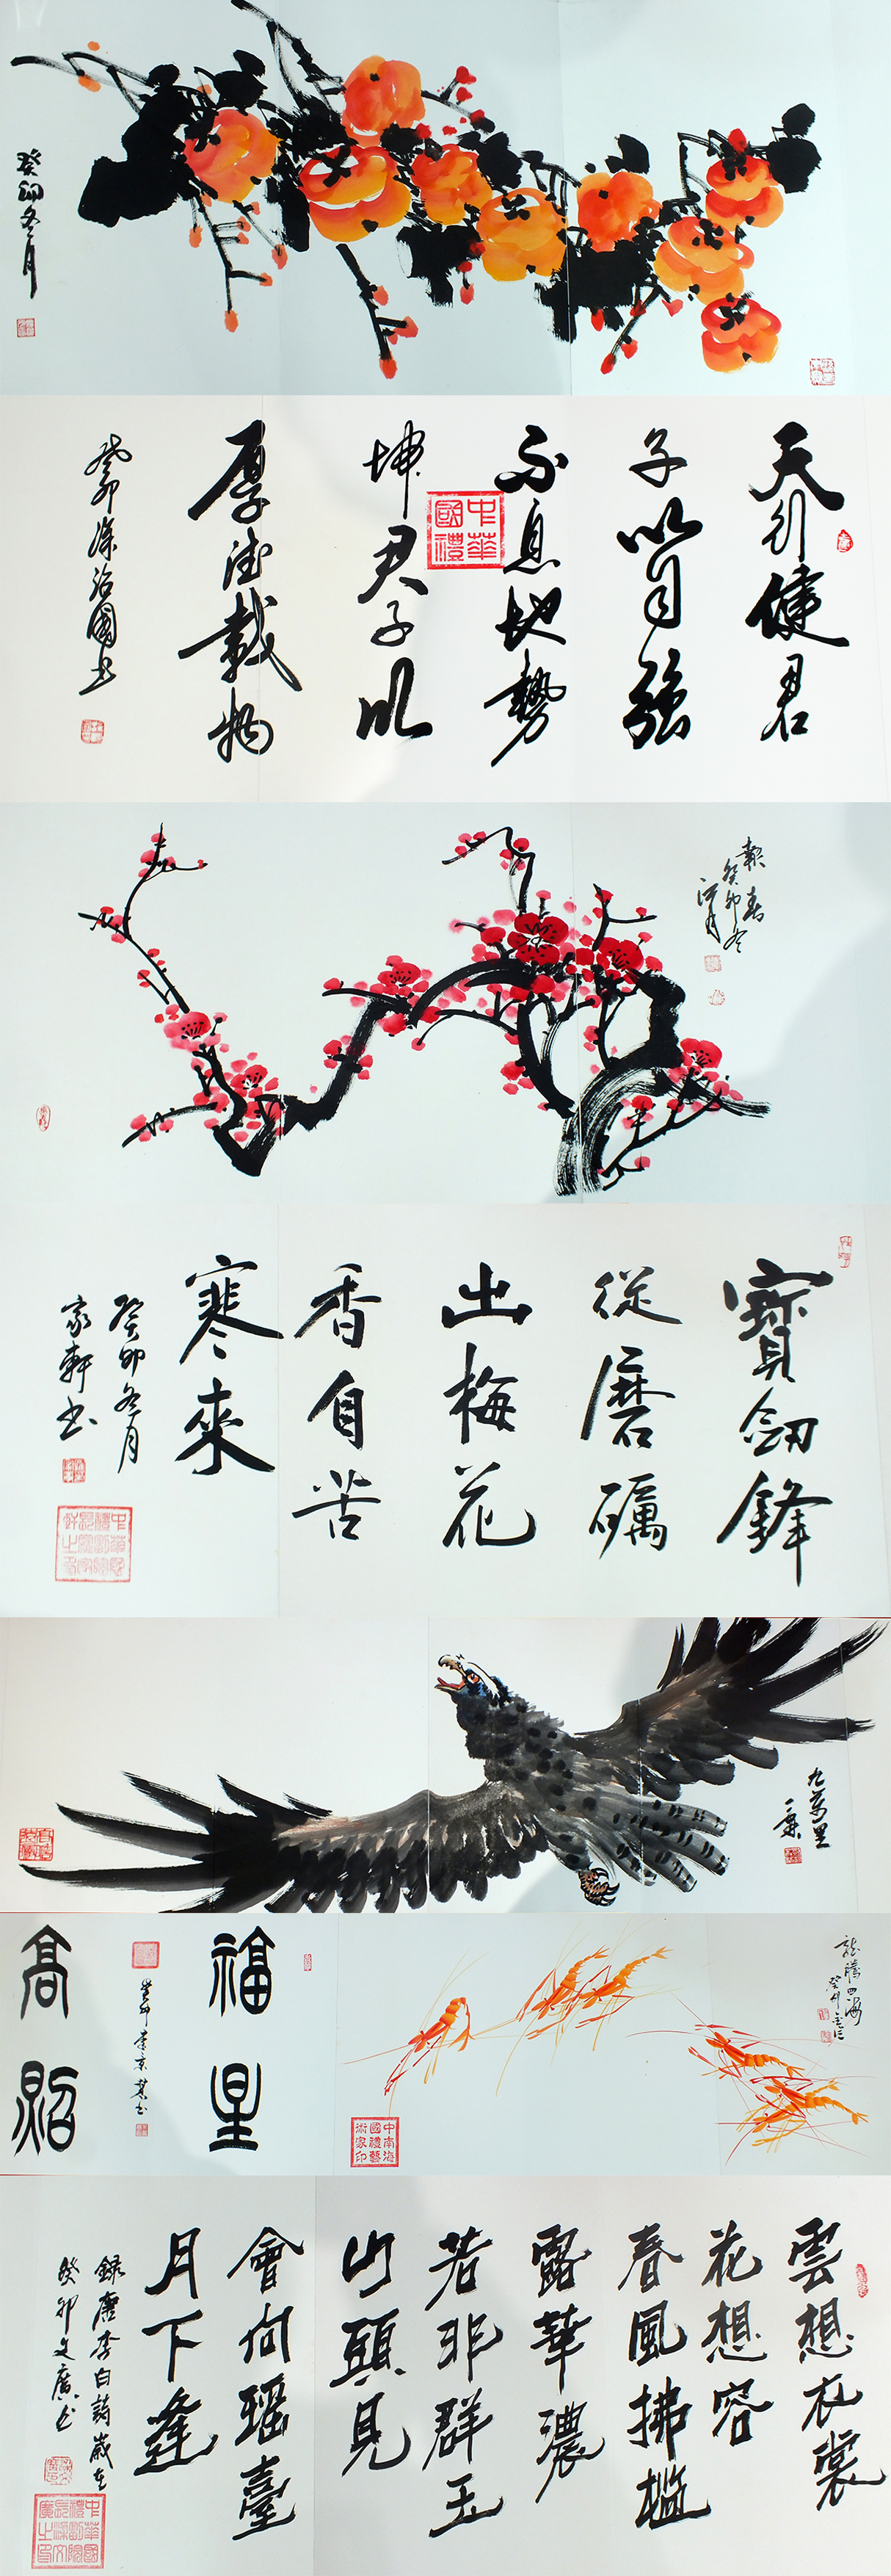 癸卯冬月
天行健君
子以自强
不息地勢
坤君子以
厚德載物
癸卯徐治國书
中華國禮
報春
癸卯冬
寶劍鋒
從磨礪
出梅花
香自苦
寒來
癸卯冬月
家軒书
九萬里
福星
高照
龍騰四海
中南海國禮藝術家印
雲想衣裳
花想容
春風拂檻
露華濃
若非群玉
山頭見
會向瑶臺
月下逢
録唐李白詩歲在
癸卯文廣书